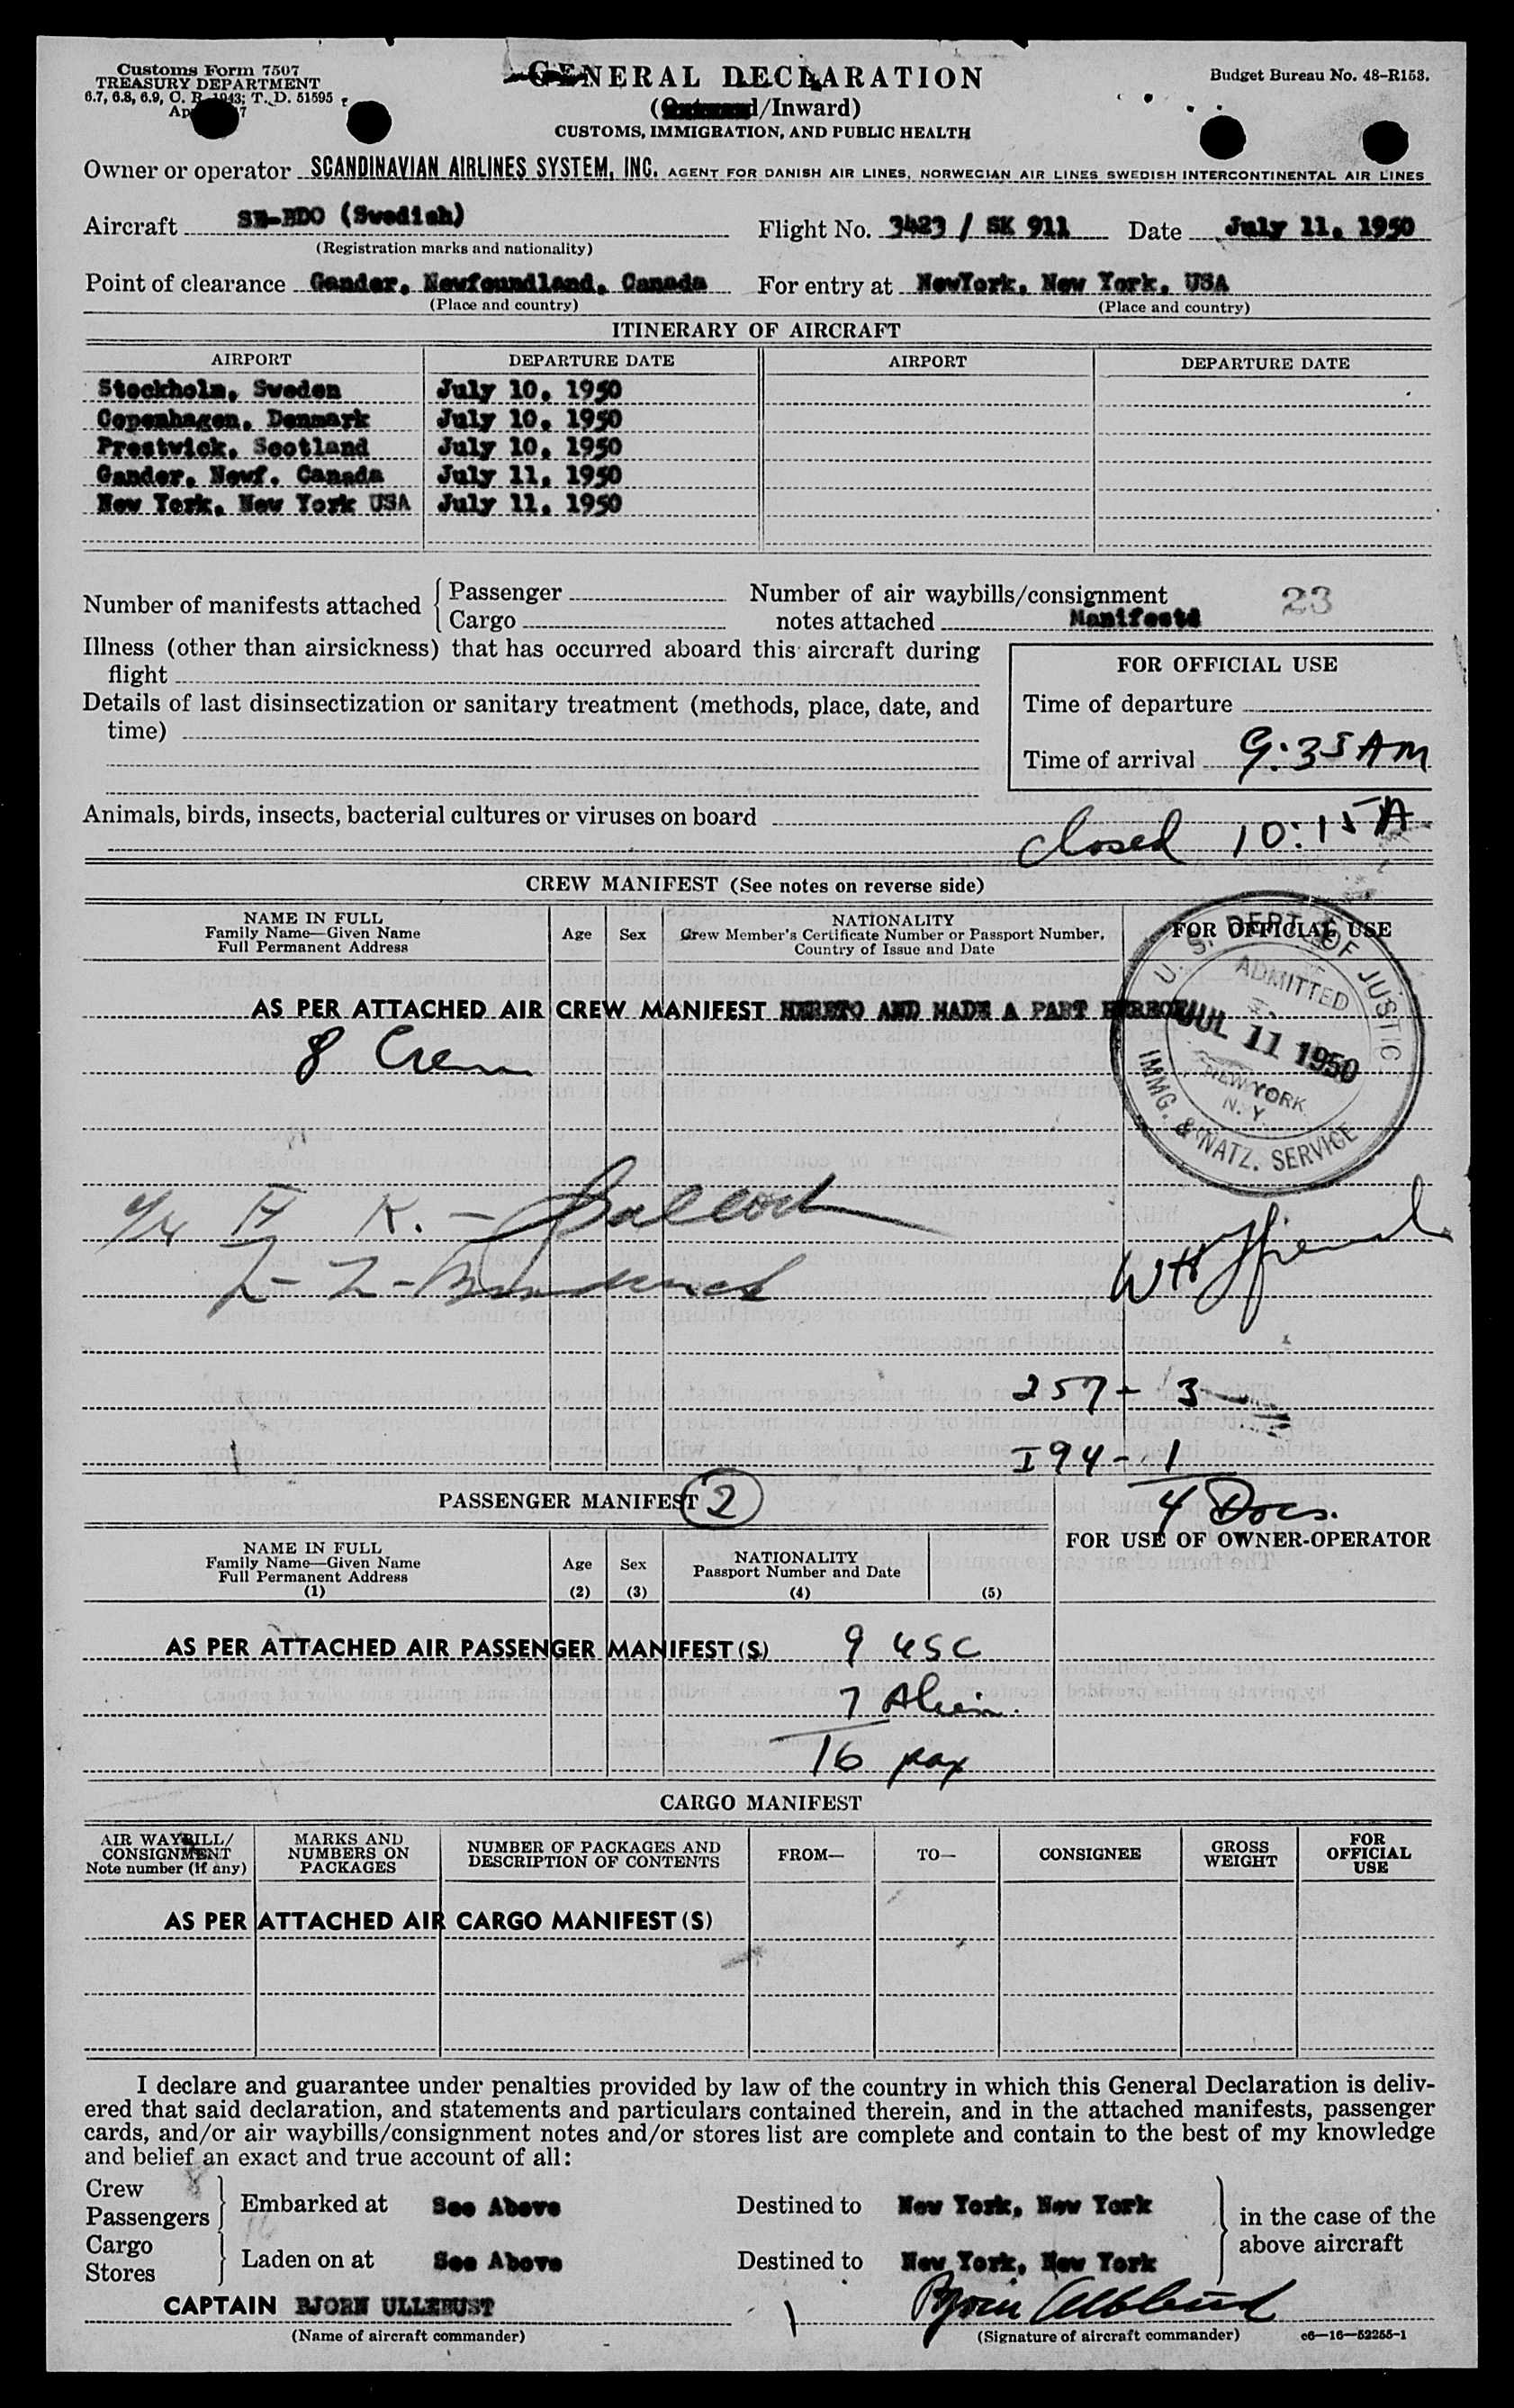 Customs Form 7507
TREASURY DEPARTMENT
6.7, 6.8, 6.9, C. R. 1943; T. D. 51595
GENERAL DECLARATION
(Outward/Inward)
CUSTOMS, IMMIGRATION, AND PUBLIC HEALTH
Budget Bureau No. 48-R153.
Owner or operator SCANDINAVIAN AIRLINES SYSTEM, INC. AGENT FOR DANISH AIR LINES, NORWEGIAN AIR LINES SWEDISH INTERCONTINENTAL AIR LINES
Aircraft SE-BDO (Swedish) Flight No. 3423 / SK 911 Date July 11, 1950
(Registration marks and nationality)
Point of clearance Gander, Newfoundland, Canada For entry at NewYork, New York, USA
(Place and country) (Place and country)
ITINERARY OF AIRCRAFT
AIRPORT DEPARTURE DATE AIRPORT DEPARTURE DATE
Stockholm, Sweden July 10, 1950
Copenhagen, Denmark July 10, 1950
Prestwick, Scotland July 10, 1950
Gander, Newf. Canada July 11, 1950
New York, New York USA July 11, 1950
Number of manifests attached { Passenger
Cargo
Number of air waybills/consignment
notes attached Manifests 23
Illness (other than airsickness) that has occurred aboard this aircraft during
flight
Details of last disinsectization or sanitary treatment (methods, place, date, and
time)
FOR OFFICIAL USE
Time of departure
Time of arrival 9:35 AM
Animals, birds, insects, bacterial cultures or viruses on board
closed 10:15 A
CREW MANIFEST (See notes on reverse side)
NAME IN FULL
Family Name—Given Name
Full Permanent Address
Age
Sex
NATIONALITY
Crew Member's Certificate Number or Passport Number,
Country of Issue and Date
FOR OFFICIAL USE
AS PER ATTACHED AIR CREW MANIFEST HERETO AND MADE A PART HEREOF
8 Crew
U. S. DEPT. OF JUSTICE
ADMITTED
JUL 11 1950
NEW YORK
N. Y.
IMMG. & NATZ. SERVICE
257 - 3
I 94 - 1
4 Docs.
PASSENGER MANIFEST 2
FOR USE OF OWNER-OPERATOR
NAME IN FULL
Family Name—Given Name
Full Permanent Address
(1)
Age
(2)
Sex
(3)
NATIONALITY
Passport Number and Date
(4)
(5)
AS PER ATTACHED AIR PASSENGER MANIFEST(S) 9 USC
7 Alien.
16 pax
CARGO MANIFEST
AIR WAYBILL/
CONSIGNMENT
Note number (if any)
MARKS AND
NUMBERS ON
PACKAGES
NUMBER OF PACKAGES AND
DESCRIPTION OF CONTENTS
FROM—
TO—
CONSIGNEE
GROSS
WEIGHT
FOR
OFFICIAL
USE
AS PER ATTACHED AIR CARGO MANIFEST(S)
I declare and guarantee under penalties provided by law of the country in which this General Declaration is deliv-
ered that said declaration, and statements and particulars contained therein, and in the attached manifests, passenger
cards, and/or air waybills/consignment notes and/or stores list are complete and contain to the best of my knowledge
and belief an exact and true account of all:
Crew 8
Passengers 16
Embarked at See Above Destined to New York, New York
Cargo
Stores
Laden on at See Above Destined to New York, New York
in the case of the
above aircraft
CAPTAIN BJORN ULLEBUST
(Name of aircraft commander)
(Signature of aircraft commander) c6—16—52255-1